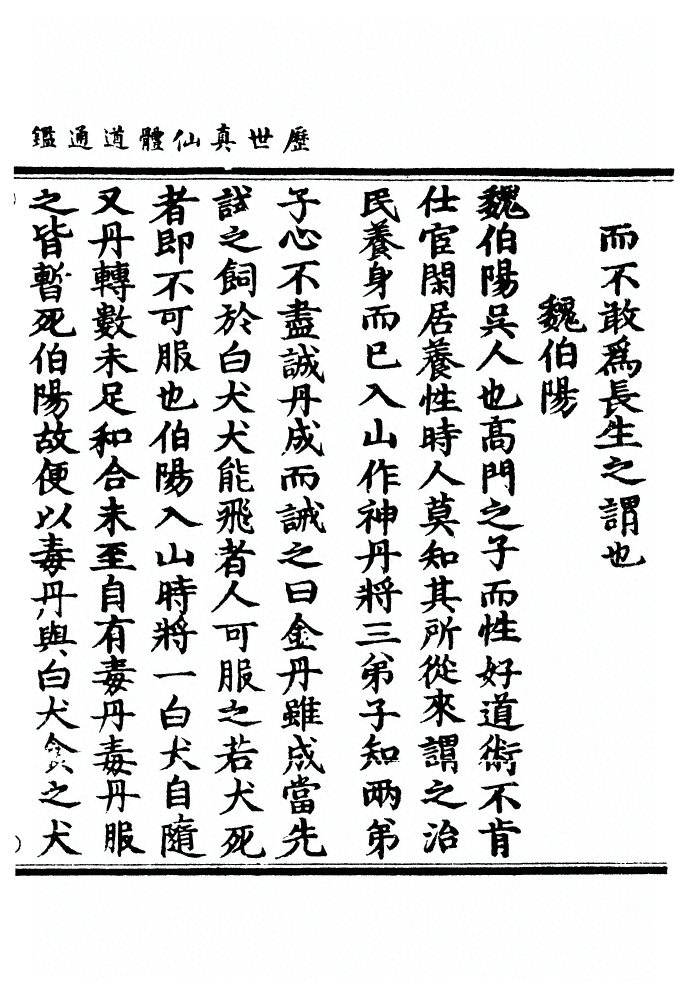 歷世真仙體道通鑑
而不敢爲長生之謂也
魏伯陽
魏伯陽吳人也高門之子而性好道術不肯
仕宦閑居養性時人莫知其所從來謂之治
民養身而已入山作神丹將三弟子知兩弟
子心不盡誠丹成而誡之曰金丹雖成當先
試之飼於白犬犬能飛者人可服之若犬死
者即不可服也伯陽入山時將一白犬自隨
又丹轉數未足和合未至自有毒丹毒丹服
之皆暫死伯陽故便以毒丹與白犬食之犬